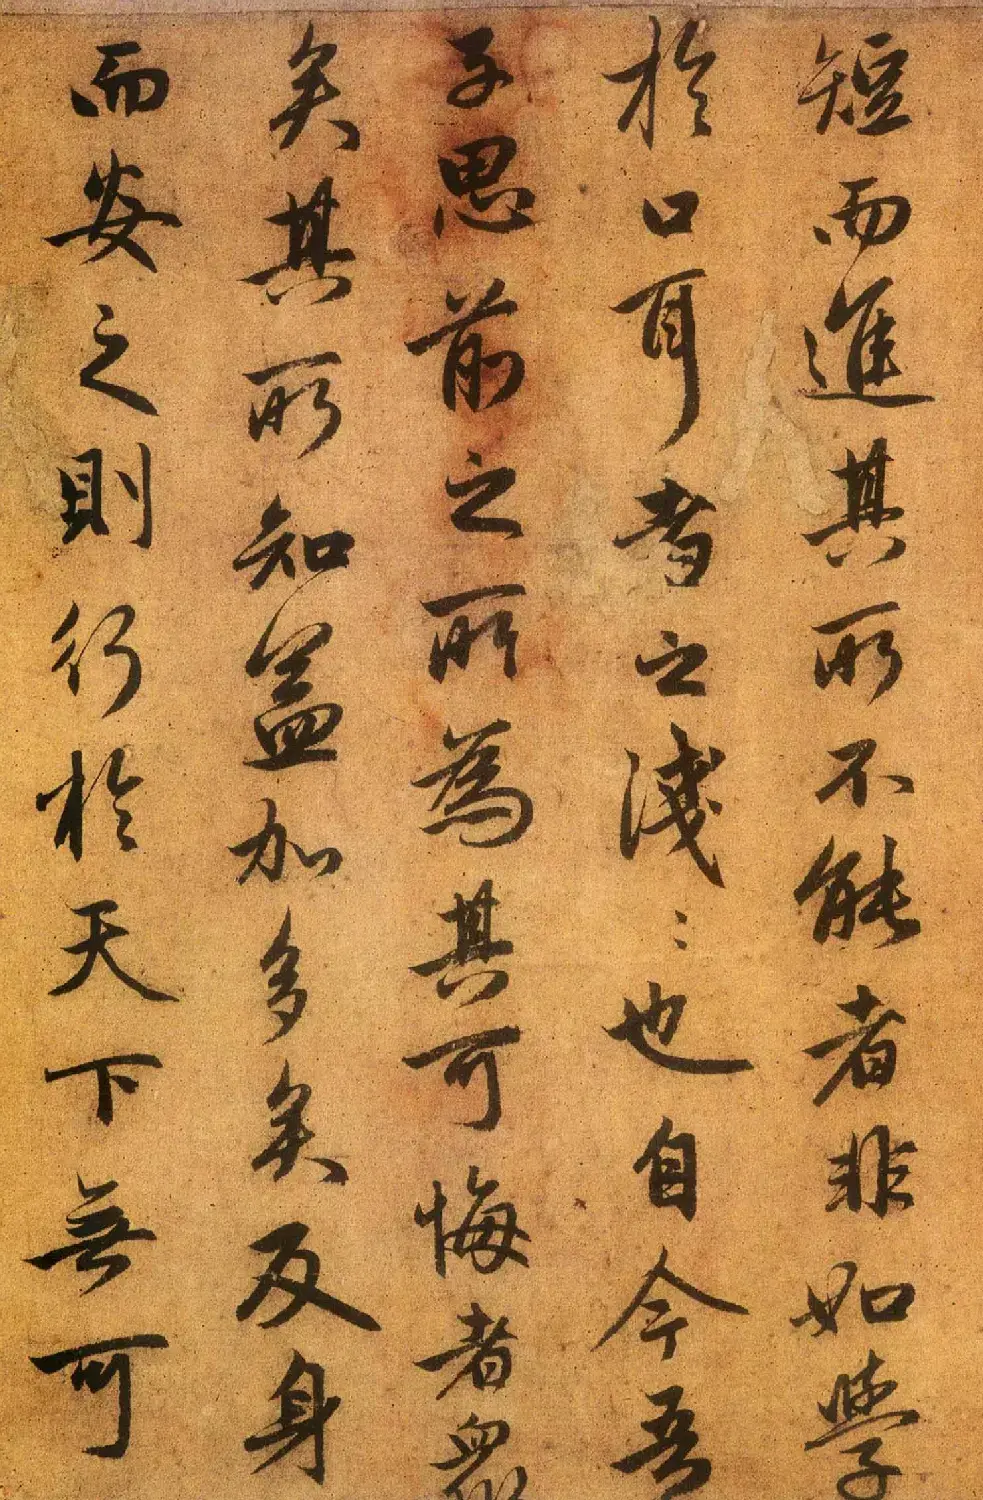 短而進其所不能者非如學
於口耳者之淺〻也自今吾
子思前之所為其可悔者眾
矣其所知益加多矣反身
而安之則行於天下無可